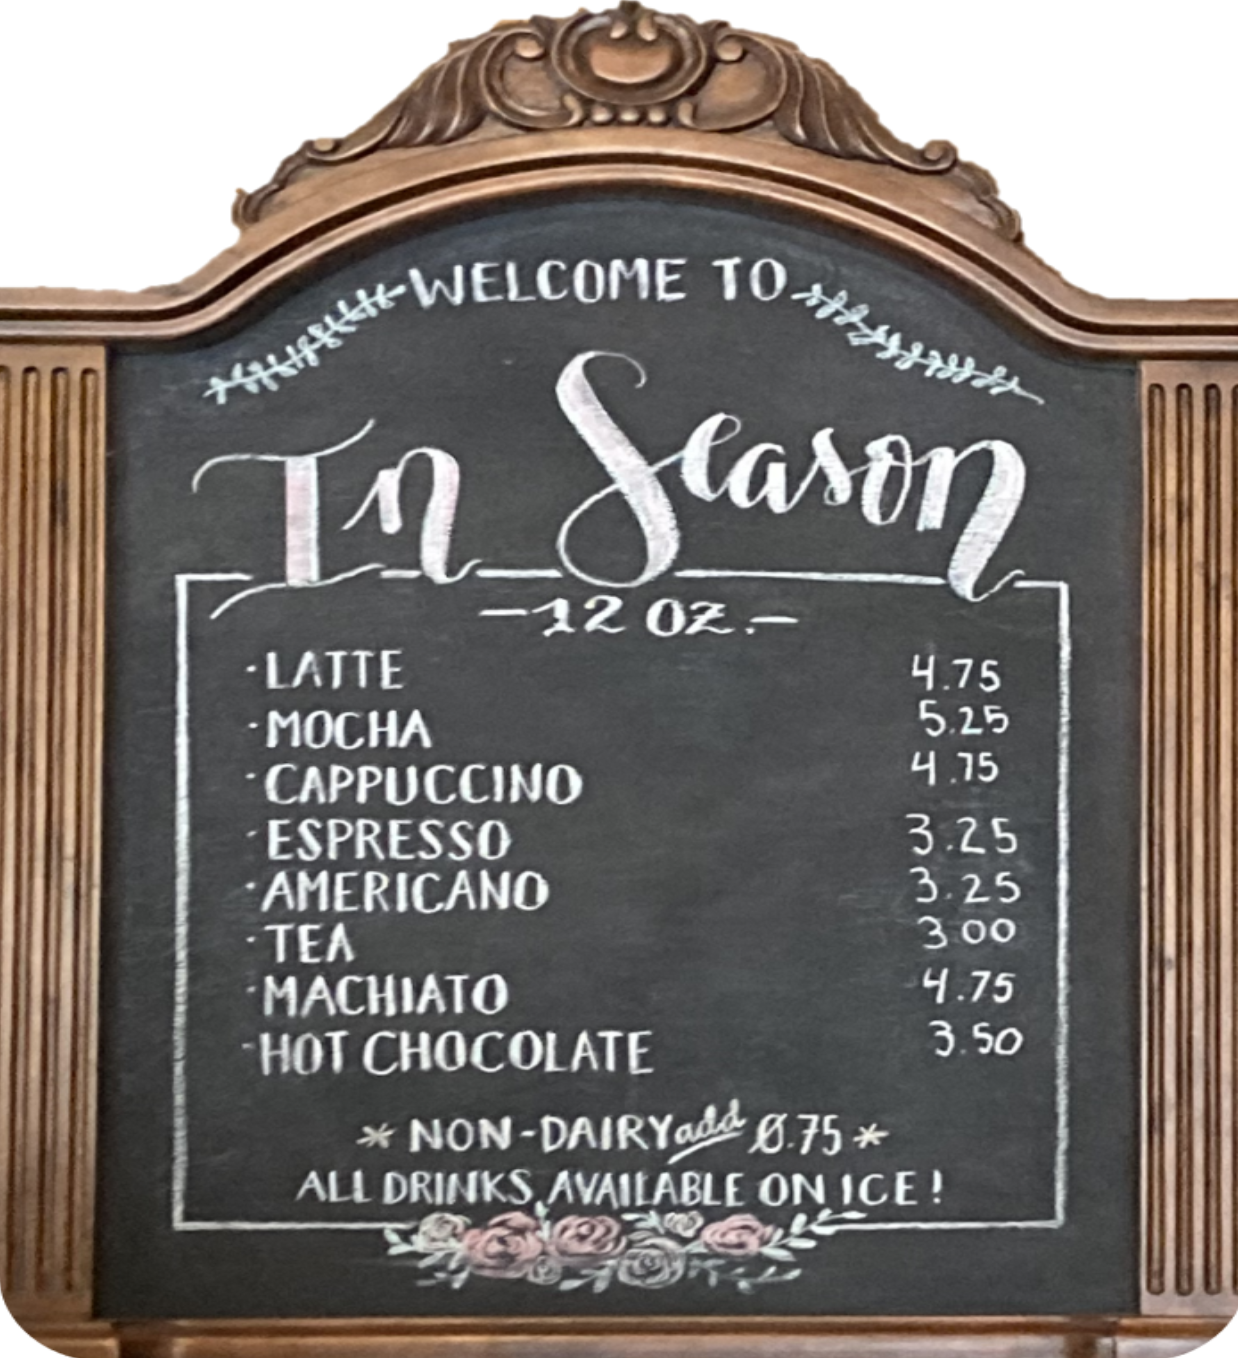 WELCOME TO
In Season
-12 OZ.-
·LATTE 4.75
·MOCHA 5.25
·CAPPUCCINO 4.75
·ESPRESSO 3.25
·AMERICANO 3.25
·TEA 3.00
·MACHIATO 4.75
·HOT CHOCOLATE 3.50
* NON-DAIRY add 0.75 *
ALL DRINKS AVAILABLE ON ICE!